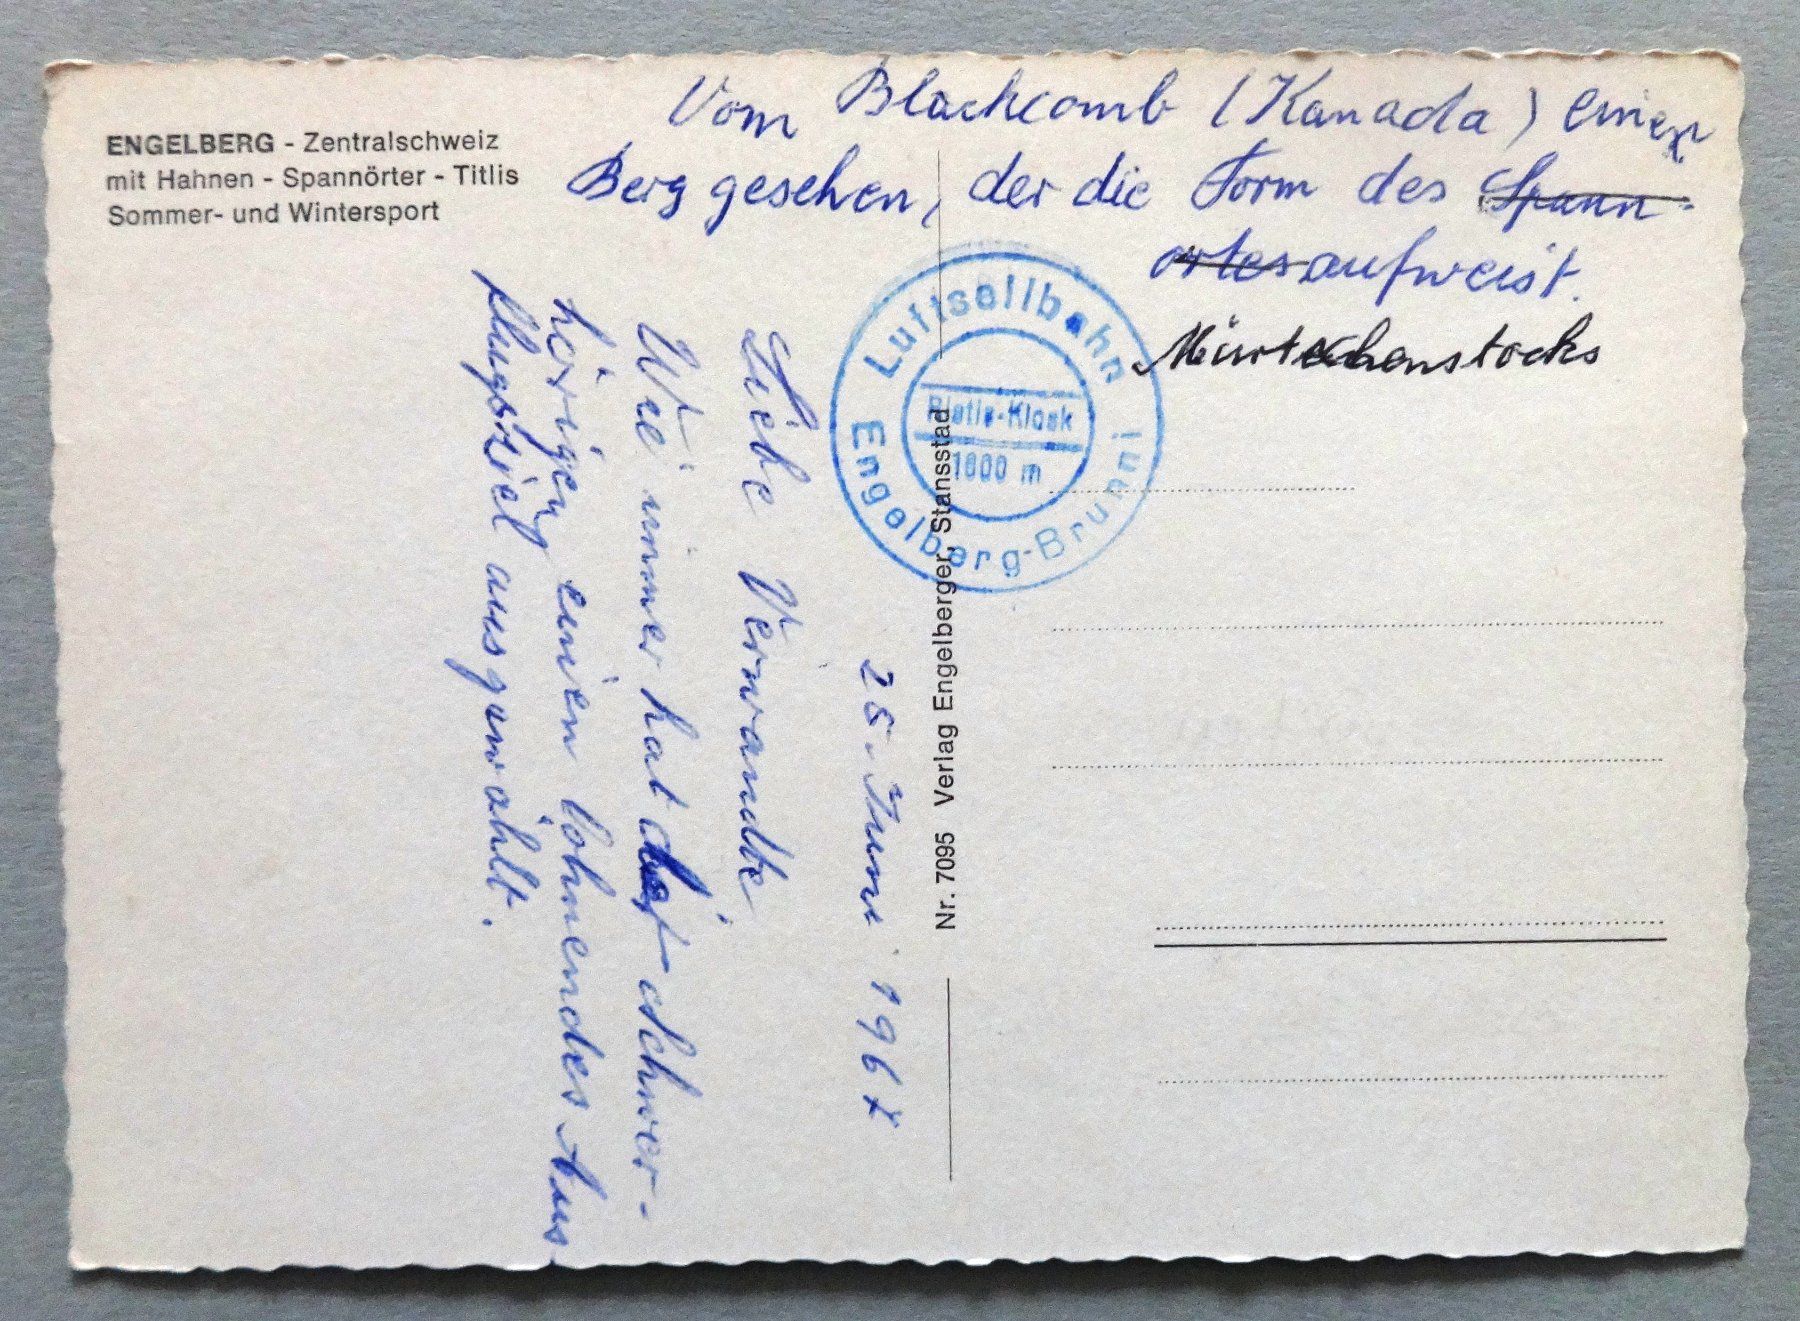 ENGELBERG - Zentralschweiz
mit Hahnen - Spannörter - Titlis
Sommer- und Wintersport
Vom Blackcomb (Kanada) einen
Berg gesehen, der die Form des Spann-
ortes aufweist.
Mürtschenstocks
Luftseilbahn
Ristis-Kiosk
1600 m
Engelberg-Brunni
Nr. 7095 Verlag Engelberger, Stansstad
25. Juni 1967
Liebe Verwandte
Wie immer hat der Schwer-
hörigen einen lohnendes Aus-
flugsziel ausgewählt.